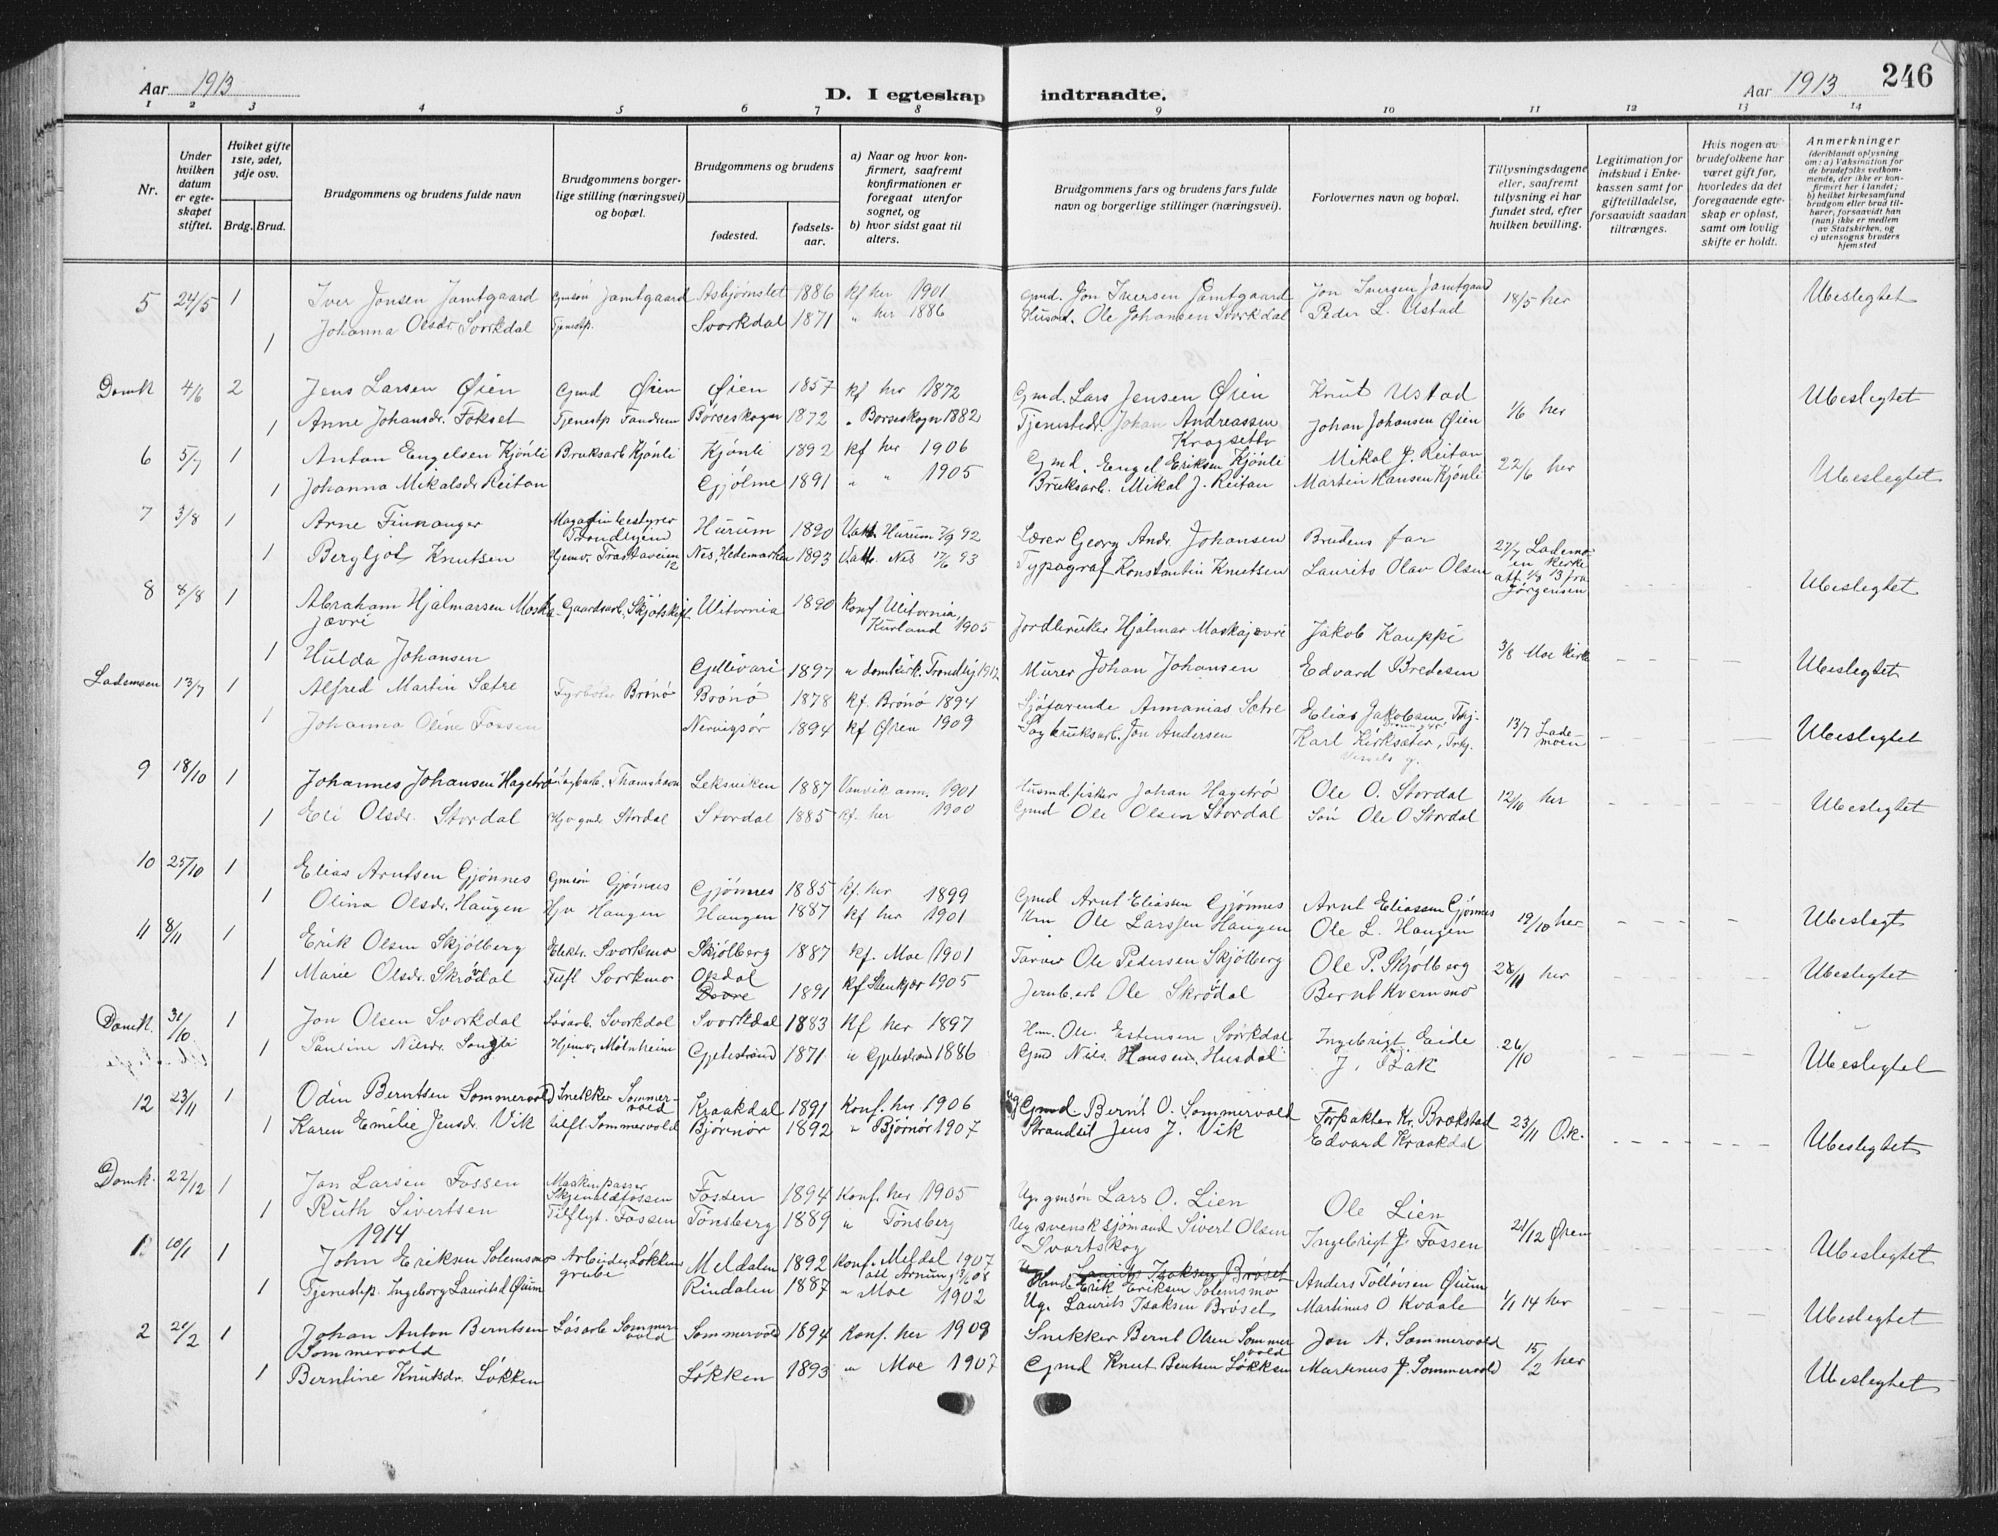 Aar 1913
D. I egteskap indtraadte.
Aar 1913
246
1 2 3 4 5 6 7 8 9 10 11 12 13 14
Nr.
Under hvilken datum er egteskapet stiftet.
Hviket gifte 1ste, 2det, 3dje osv.
Brdg. Brud.
Brudgommens og brudens fulde navn
Brudgommens borgerlige stilling (næringsvei) og bopæl.
Brudgommens og brudens
fødested.
fødselsaar.
a) Naar og hvor konfirmert, saafremt konfirmationen er foregaat utenfor sognet, og
b) hvor sidst gaat til alters.
Brudgommens fars og brudens fars fulde navn og borgerlige stillinger (næringsvei).
Forlovernes navn og bopæl.
Tillysningsdagene eller, saafremt tillysning ei har fundet sted, efter hvilken bevilling.
Legitimation for indskud i Enkekassen samt for giftetilladelse, forsaavidt saadan tiltrænges.
Hvis nogen av brudefolkene har været gift før, hvorledes da det foregaaende egteskap er opløst, samt om lovlig skifte er holdt.
Anmerkninger (deriblandt oplysning om: a) Vaksination for de brudefolks vedkommende, der ikke er konfirmert her i landet; b) hvilket kirkesamfund brudgom eller brud tilhører, forsaavidt han (hun) ikke er medlem av Statskirken, og c) utensogns bruders hjemsted
5 24/5 1 Iver Jonsen Jamtgaard Gmsøn Jamtgaard Asbjørnslet 1886 kf her 1901 Gmd. Jon Iversen Jamtgaard Jon Iversen Jamtgaard 18/5 her Ubeslegtet
1 Johanna Olsdr. Svorkdal Tjenestp. Svorkdal 1871 " her 1886 Husmd. Ole Johansen Svorkdal Peder L. Ustad
Domk 4/6 2 Jens Larsen Øien Gmd Øien Øien 1857 kf her 1872 Gmd. Lars Jensen Øien Knut Ustad 1/6 her Ubeslegtet
1 Anne Johansdr. Fokset Tjenestp Fandrem Børseskogn 1872 " Børseskogn 1882 Tjenestedr. Johan Andreassen Kragsetto Johan Johansen Øien
6 5/7 1 Anton Engelsen Kjönli Bruksarb Kjönli Kjönli 1892 kf her 1906 Gmd. Engel Eriksen Kjönli Mikal J. Reitan 22/6 her Ubeslegtet
1 Johanna Mikalsdr. Reitan Gjölme 1891 " " 1905 Bruksarb. Mikal J. Reitan Martin Hansen Kjönli
7 3/8 1 Arne Finnanger Magasinbestyrer Trondhjem Hurum 1890 Vatt Hurum 7/9 92 Lærer Georg Andr. Johansen Brudens far 27/7 Lademoen kirke att. 1/8 13 fra Jørgensen Ubeslegtet
1 Bergljot Knutsen Hjemv. 12 Nes, Hedemarken 1893 Vatt. Nes 17/6 93 Typograf Konstantin Knutsen Laurits Olav Olsen
8 8/8 1 Abraham Hjalmarsen Maskajævri Gaardsarb. Uitornia 1890 konf Uitornia, Kurland 1905 Jordbruker Hjalmar Maskajævri Jakob Kauppi 3/8 Moe kirke Ubeslegtet
1 Hulda Johansen Gellivari 1897 " domkirk. Trondhj 1912 Murer Johan Johansen Edvard Bredesen
Lademoen 13/7 1 Alfred Martin Sætre Fyrbøter Brönö Brönö 1878 kf. Brönö 1894 Sjöfarende Ananias Sætre Elias Jakobsen, Thj. 13/7 Lademoen Ubeslegtet
1 Johanna Oline Fossen 1894 kf Øren 1909 Sagbruksarb. Jon Andersen Karl Kirksæter, Trhj.
9 18/10 1 Johannes Johansen Hagetrö Thamshavn Leksviken 1887 Vanvik ann. 1901 Husmd. fisker Johan Hagetrö Ole O. Stordal 12/10 her Ubeslegtet
1 Eli Olsdr. Stordal Hjv gmdr. Stordal Stordal 1885 kf. her 1900 Gmd Ole Olsen Stordal Søn Ole O Stordal
10 25/10 1 Elias Arntsen Gjönnes Gmsøn Gjönnes Gjönnes 1885 kf. her 1899 Gmd Arnt Eliassen Gjönnes Arnt Eliassen Gjönnes 19/10 her Ubeslegt
1 Olina Olsdr. Haugen Hjv Haugen Haugen 1887 kf her 1901 Ole Larssen Haugen Ole L. Haugen
11 8/11 1 Erik Olsen Skjölberg Elektr. Svorkmo Skjölberg 1887 kf. Moe 1901 Ole Pedersen Skjölberg Ole P. Skjölberg 28/11 her Ubeslegtet
1 Marie Olsdr. Skrödal Tilfl Svorkmo Opdal Dovre 1891 kf Stenkjær 1905 Jernb. arb Ole Skrödal Bernt Kvernmo
Domk. 31/10 1 Jon Olsen Svorkdal Løsarb. Svorkdal Svorkdal 1883 kf her 1897 Hm. Ole Estensen Svorkdal Ingebrigt Eide 26/10 Ubeslegtet
1 Pauline Nilsdr. Songli Hjemv. Melnheim Gjetestrand 1871 " Gjetestrand 1886 Gmd Nils Hansen Husdal J. Bak
12 23/11 1 Odin Berntsen Sommervold Snekker Sommervold Kraakdal 1891 Konf. her 1906 Gmd Bernt O. Sommervold Forpakter Kr. Brækstad 23/11 O.k. Ubeslegtet
1 Karen Emilie Jensdr. Vik tilfl. Sommervold Bjørnør 1892 " Bjørnør 1907 Strandsit Jens J. Vik Edvard Kraakdal
Domk. 22/12 1 Jon Larsen Fossen Maskinpasser Skjenaldfossen Fossen 1894 Konf. her 1905 Ug. gmsøn Lars O. Lien Ole Lien 21/12 Øren Ubeslegtet
1 Ruth Sivertsen Tilflyt. Fossen Tønsberg 1889 " Tønsberg Ug svensk sjömand Sivert Olsen Svartskog Ingebrigt J. Fossen
1914
1 10/1 1 John Eriksen Solemsmo Arbeider Løkken grube Meldalen 1892 Konf. Meldal 1907 Laurits Isaksen Brøset Erik Eriksen Solemsmo Anders Tollovsen Øium 1/1 14 her Ubeslegtet
1 Tjenestp. Ingeborg Lauritsd. Øium Rindalen 1887 " Moe 1902 Ug. Laurits Isaksen Brøset Martinus O Kvaale
2 20/2 1 Johan Anton Berntsen Sommervold Løsarb Sommervold Sommervold 1894 Konf. her 1909 Snekker Bernt Olsen Sommervold Jon A. Sommervold 15/2 her Ubeslegtet
1 Berntine Knutsdr. Løkken Løkken 1893 " Moe 1907 Gmd Knut Bentsen Løkken Martinus J. Sommervold